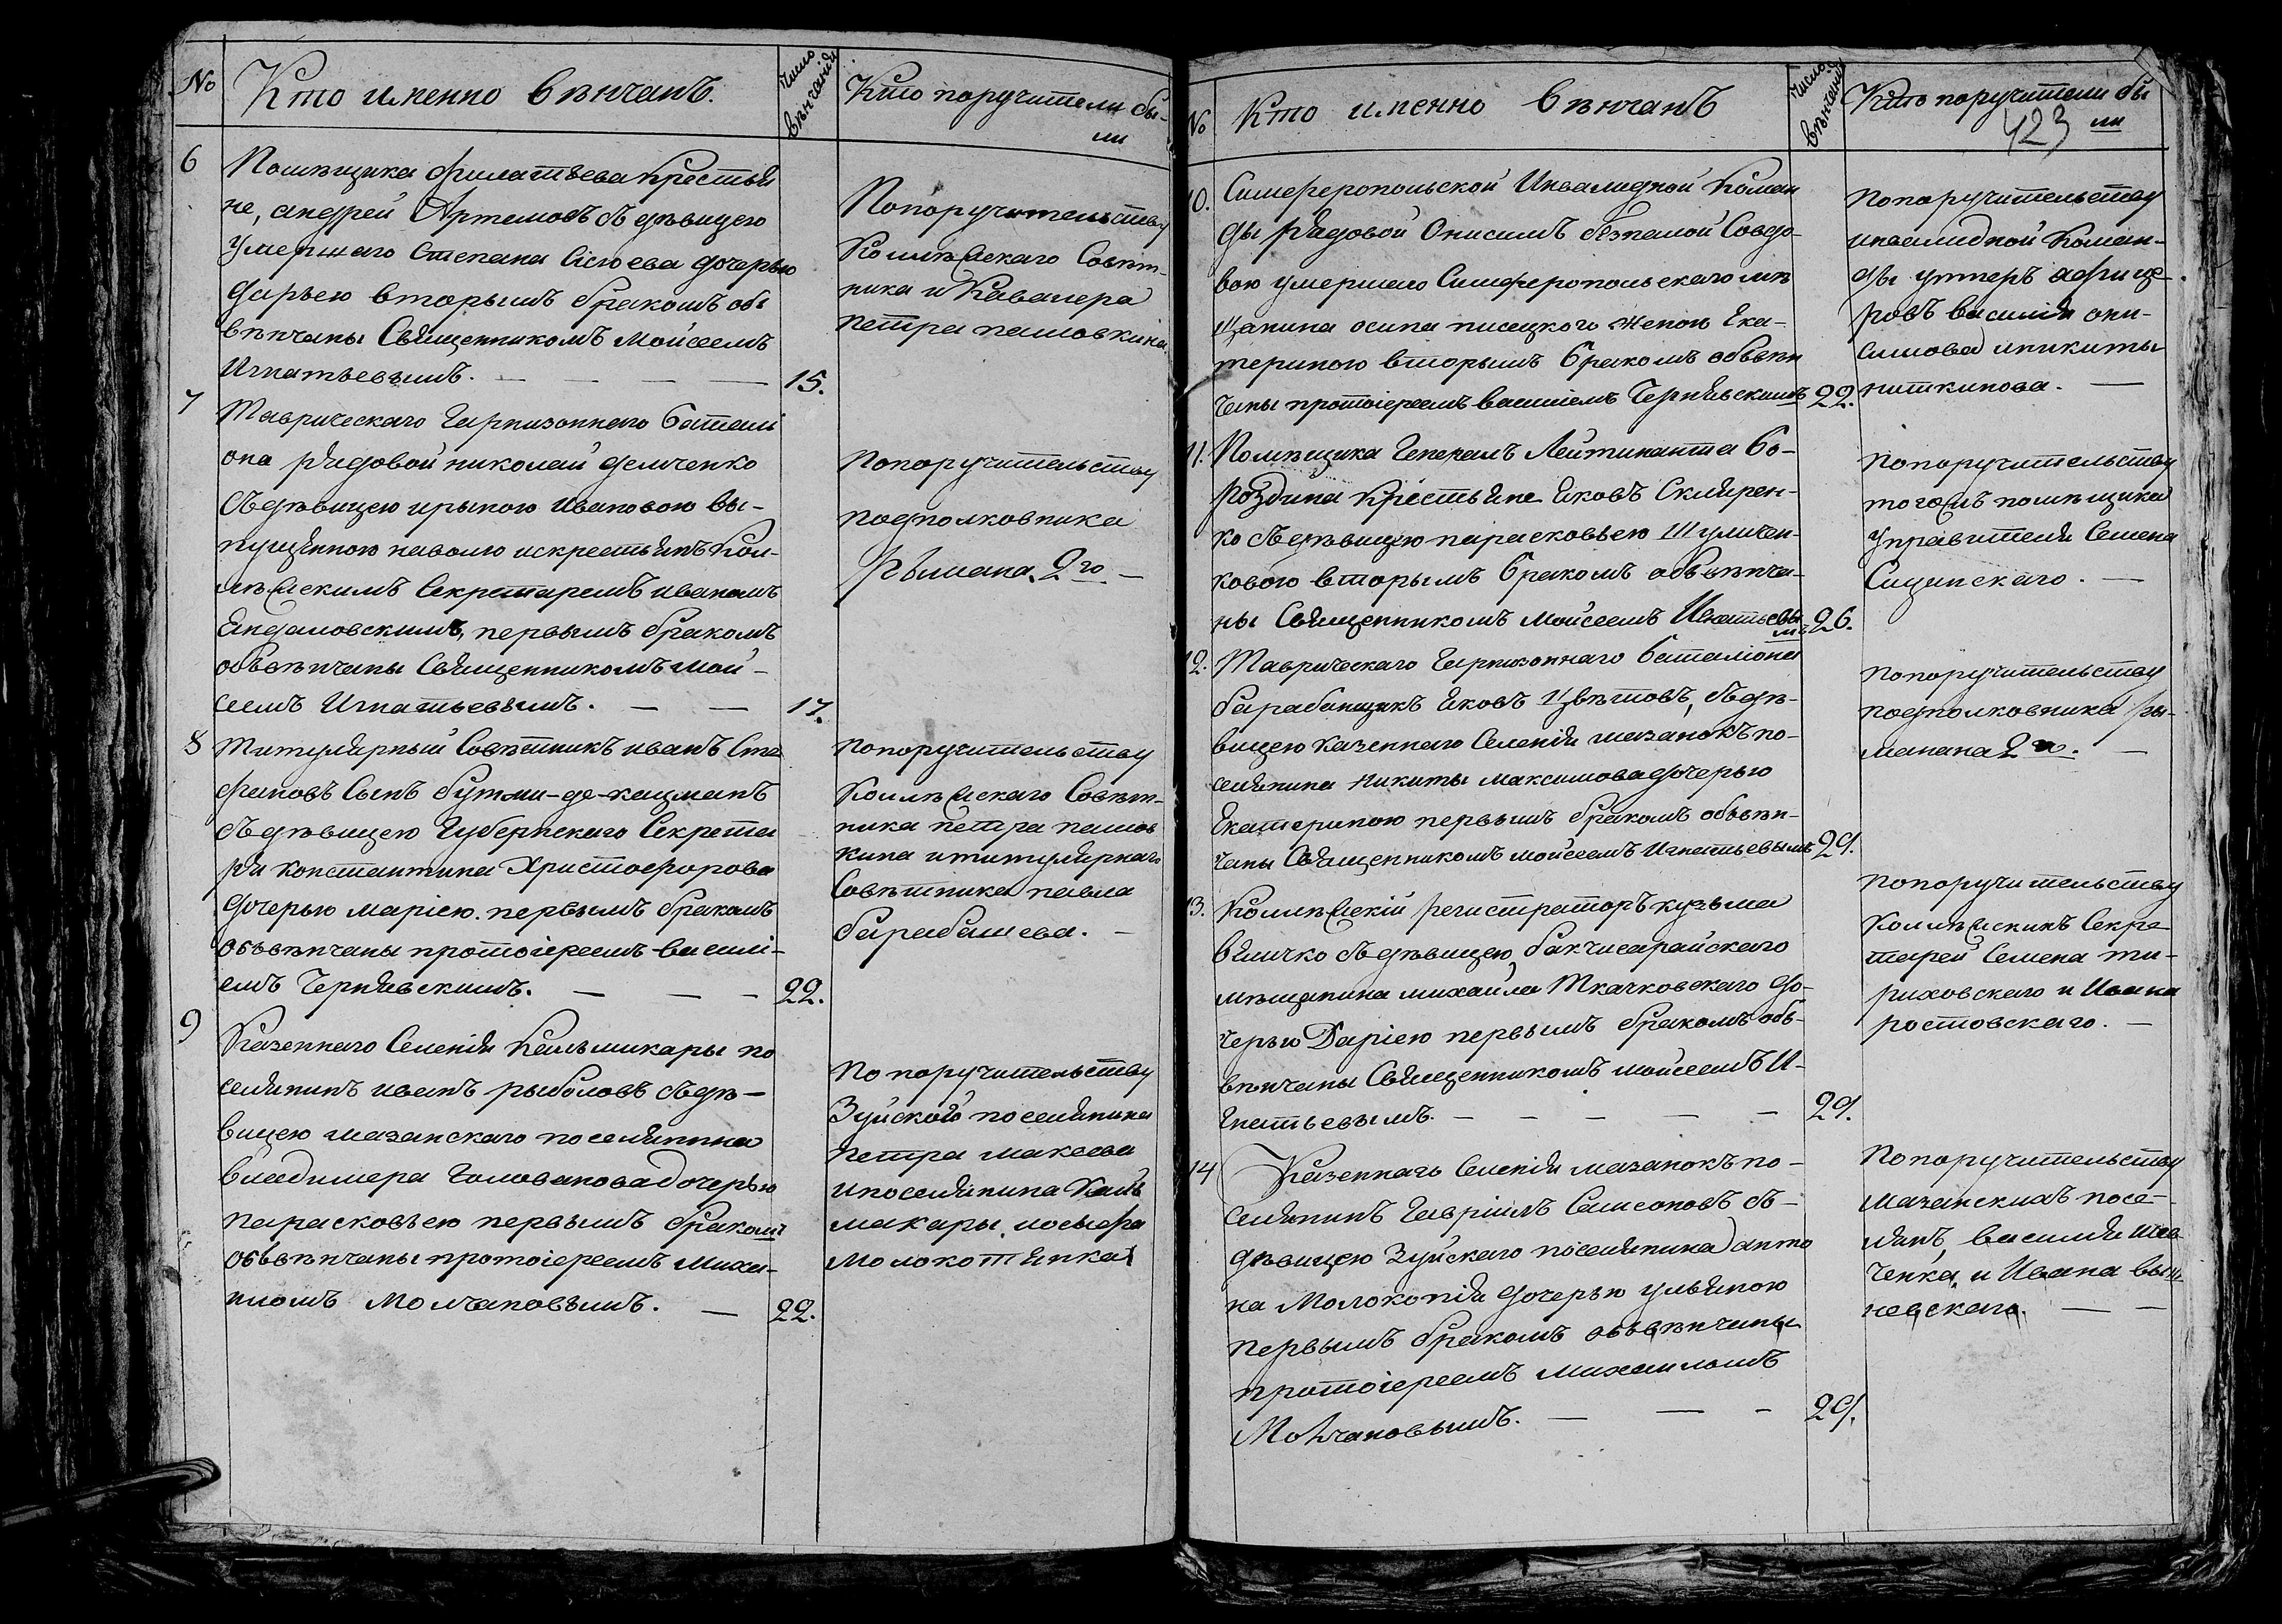 №
Кто именно вѣнчанъ.
Число вѣнчанія
Кто поручители бы-
ли
6
Помѣщика Филатьева крестья
не, андрей Артемовъ съ дѣвицею
умершаго Степана Сісюева дочерью
дарьею вторымъ бракомъ обь
вѣнчаны Священникомъ Мойсеемъ
Игнатьевымъ. — — — —
15.
Попоручительству
Коллѣжскаго Совѣт-
ника и Кавалера
петра пашовкина.
7
Таврическаго Гарнизоннаго баталі
она рядовой николай демченко
съ дѣвицею ириною ивановою вы-
пущенною наволю искрестьянъ Кол-
лѣжскимъ Секретаремъ иваномъ
первымъ бракомъ
объвѣнчаны Священникомъ Мой-
сеемъ Игнатьевымъ. — —
17.
попоручительству
подполковника
Рымана 2го —
8
Титулярный Совѣтникъ иванъ Сте
фановъ Сынъ бутми-де-кацманъ
съ дѣвицею Губернскаго Секрета
ря константина Христофорова
дочерью маріею первымъ бракомъ
объвѣнчаны протоіереемъ василі-
емъ Чернявскимъ. — — —
22.
попоручительству
Коллѣжскаго Совѣт-
ника петра пашов
кина ититулярнаго
Совѣтника павла
барабашева. —
9
Казеннаго Селенія Кильмикары по
селянинъ иванъ рыболовъ съ дѣ-
вицею мазанскаго поселянина
владимера Голованова дочерью
парасковьею первымъ бракомъ
объвѣнчаны протоіереемъ Миха-
иломъ Молчановымъ. —
22.
По поручительству
Зуйской поселянина
петра макеева
ипоселянина Киль
макары, иосыфа
Молокотянка
№
Кто именно вѣнчанъ
Число вѣнчанія
Кто поручители бы
ли
423
10.
Симферопольской Инвалидной Коман
ды рядовой Онисимъ безпалой Совдо-
вою умершаго Симферопольскаго мѣ
щанина осипа писецкого женою Ека-
териною вторымъ бракомъ объвѣн
чаны протоіереемъ василіемъ Чернявскимъ
22.
попоручительству
инвалидной Коман-
ды унтеръ афице-
ровъ василія они-
симова иникиты
питкинова. —
11.
Помѣщика Генералъ Лейтинанта бо-
роздина Крестьяне Яковъ Склярен-
ко съ дѣвицею парасковьею Шуличен-
ковою вторымъ бракомъ объвѣнча-
ны Священникомъ Мойсеемъ Игнатьевы
мъ
26.
попоручительству
тогожъ помѣщика
управителя Семена
Сицинскаго. —
12.
Таврическаго Гарнизоннаго баталіона
барабанщикъ Яковъ Цвѣтовъ, съ дѣ-
вицею казеннаго Селенія мазанокъ по-
селянина Никиты Максимова дочерью
Екатериною первымъ бракомъ объвѣн-
чаны Священникомъ мойсеемъ Игнатьевымъ
29.
попоручительству
подполковника Ры-
манана 2го. —
13.
Коллѣжскій регистраторъ кузьма
величко съ дѣвицею, бакчисарайскаго
мѣщанина михаила Ткачковскаго до-
черью Даріею первымъ бракомъ объ-
вѣнчаны Священникомъ мойсеемъ И-
гнатьевымъ. — — — — —
29.
попоручительству
Коллѣжскихъ Секре-
тарей Семена ти-
риховскаго и Ивана
ростовскаго. —
14
Казеннаго Селенія мазанокъ по-
селянинъ Гавріилъ Самсоновъ съ-
дѣвицею Зуйскаго поселянина анто
на Молоконія дочерью ульяною
первымъ бракомъ объвѣнчаны
протоіереемъ михаиломъ
Молчановымъ. — — —
29.
По поручительству
Мазанскихъ посе-
лянъ, василія Шев-
ченка, и Ивана выш
невскаго. — —